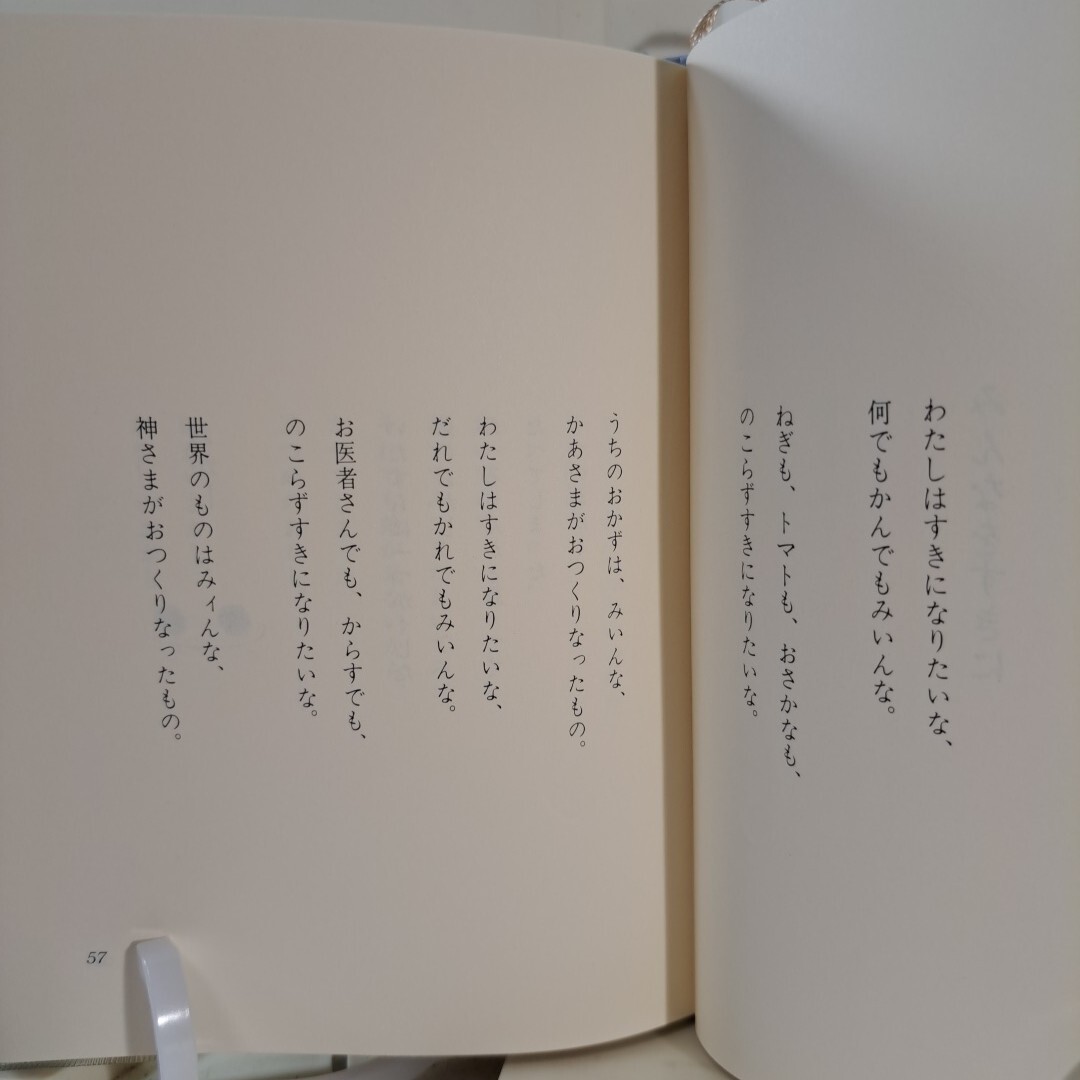 わたしはすきになりたいな、
何でもかんでもみいんな。
ねぎも、トマトも、おさかなも、
のこらずすきになりたいな。
うちのおかずは、みいんな、
かあさまがおつくりなったもの。
わたしはすきになりたいな、
だれでもかれでもみいんな。
お医者さんでも、からすでも、
のこらずすきになりたいな。
世界のものはみィんな、
神さまがおつくりなったもの。
57